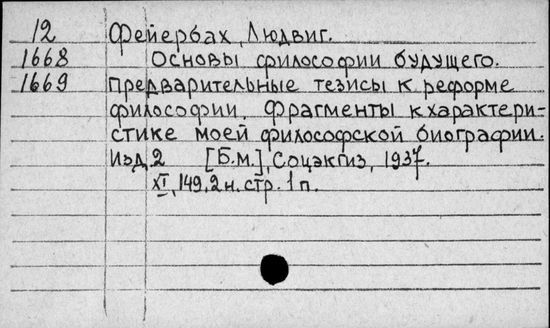 12 Фейербах, Людвиг.
1668 Основы философии будущего.
1669 Предварительные тезисы к реформе
философии. Фрагменты к характери-
стике моей философской биографии.
Изд. 2 [Б.м.], Соцэкгиз, 1937.
XI, 149, 2 н. стр. 1 п.